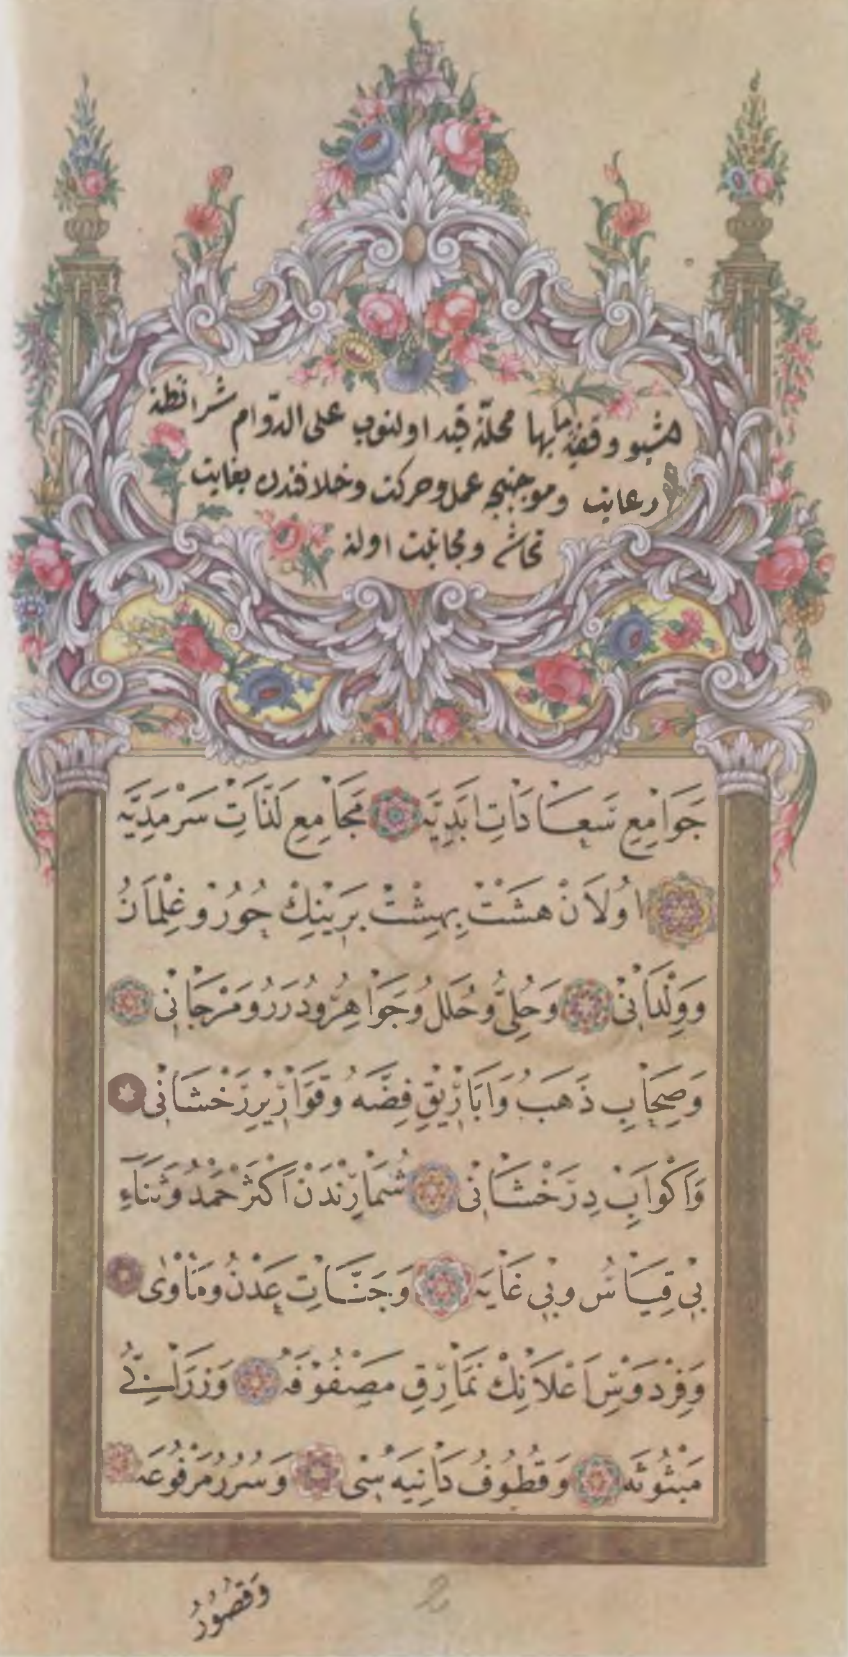 اشبو وقفيۀ بها محلنه قيد اولنوب على الدوام شرائطنه
رعايت وموجبنجه عمل وحركت وخلافندن بغايت
تحاشى ومجانبت اولنه
جَوَامِعِ سَعَادَاتِ اَبَدِيَّه مَجَامِعِ لَذَّاتِ سَرْمَدِيَّه
اُولَانْ هَشْتْ بِهِشْتْ بَرِينْكْ حُورُ وغِلْمَانُ
وَوِلْدَانِى وَحُلِىُّ وحُلَلُ وجَوَاهِرُ ودُرَرُ ومَرْجَانِى
وَصِحَابِ ذَهَبُ وَابَارِيقِ فِضَّهُ وقَوَارِيرِ رَخْشَانِى
وَاَكْوَابِ دِرَخْشَانِى شُمَارِنْدَنْ اَكْثَرْ حَمْدُ وثَنَاءِ
بِى قِيَاسُ وبِى غَايَه وَجَنَّاتِ عَدْنُ ومَأْوٰى
وَفِرْدَوْسِ اَعْلَانِكْ نَمَارِقِ مَصْفُوفَهُ وَزَرَابِىِّ
مَبْثُوثَه وَقُطُوفُ دَانِيَه سْنِى وَسُرُرُ مَرْفُوعَه
وَقُصُورُ
2